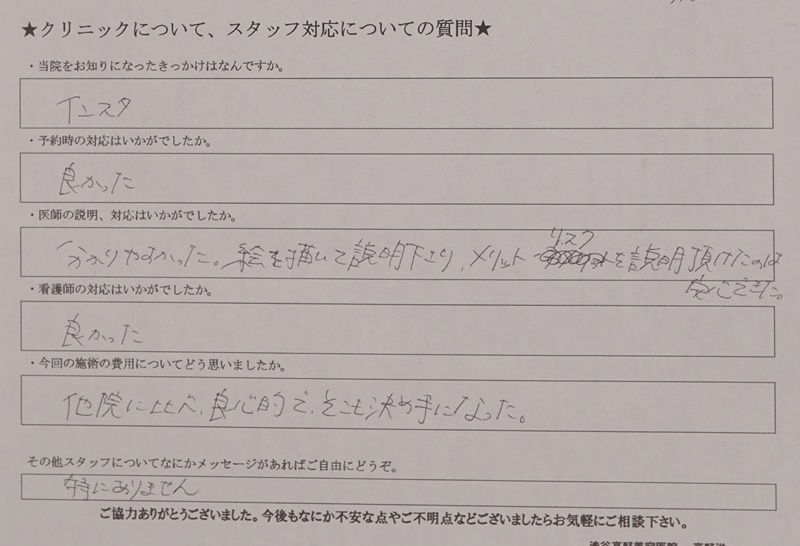 ★クリニックについて、スタッフ対応についての質問★
・当院をお知りになったきっかけはなんですか。
インスタ
・予約時の対応はいかがでしたか。
良かった
・医師の説明、対応はいかがでしたか。
リスク
分かりやすかった。絵を描いて説明下さり、メリット を説明頂けたのは
安心できた。
・看護師の対応はいかがでしたか。
良かった
・今回の施術の費用についてどう思いましたか。
他院に比べ、良心的で、そこも決め手になった。
その他スタッフについてなにかメッセージがあればご自由にどうぞ。
特にありません
ご協力ありがとうございました。今後もなにか不安な点やご不明点などございましたらお気軽にご相談下さい。